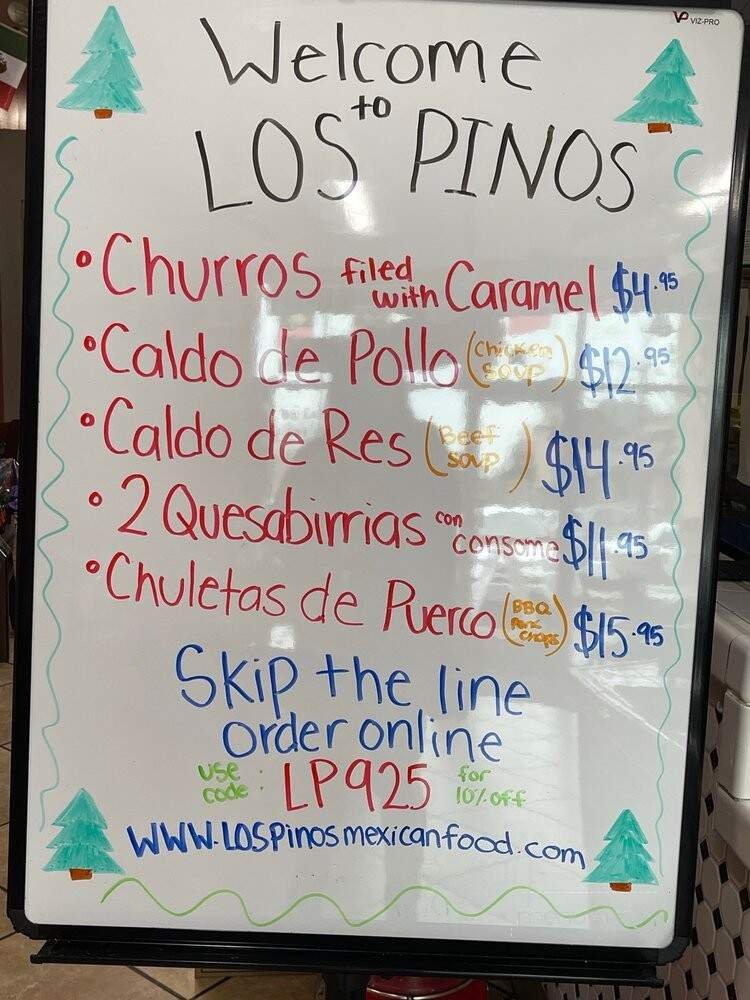 VP VIZ-PRO
Welcome
to
LOS PINOS
• Churros filed with Caramel $4.95
• Caldo de Pollo (Chicken soup) $12.95
• Caldo de Res (Beef soup) $14.95
• 2 Quesabirrias con consome $11.95
• Chuletas de Puerco (BBQ Pork Chops) $15.95
Skip the line
order online
use code: LP925 for 10% off
WWW.LOSPinosmexicanfood.com